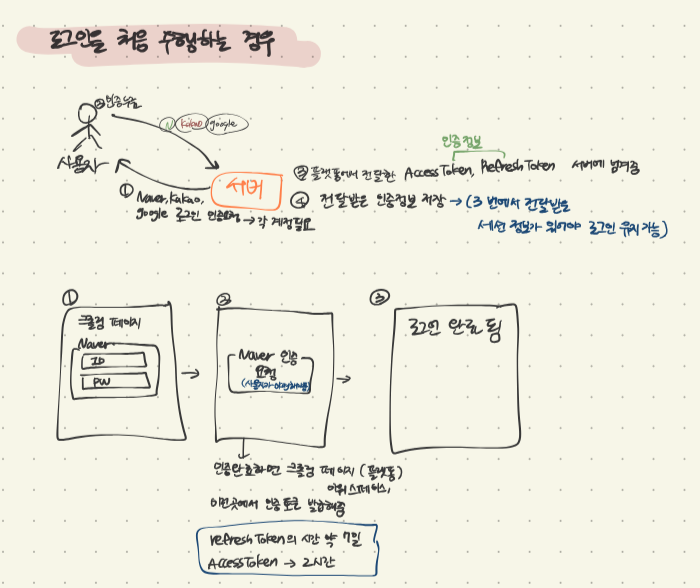 로그인을 처음 수행하는 경우
② 인증수단
N Kakao google
사용자
서버
① Naver, Kakao,
google 로그인 인증요청 → 각 계정필요
인증정보
③ 플랫폼에서 전달한 AccessToken, RefreshToken 서버에 넘겨줌
④ 전달받은 인증정보 저장 → (3번에서 전달받은
세션 정보가 있어야 로그인 유지가능)
①
페이지
Naver
ID
PW
②
Naver 인증
요청
(사용자가
③
로그인 완료 됨
인증완료하면 페이지 (플랫폼)
이런곳에서 인증토큰 발급해줌
refreshToken의 시간 약 7일
AccessToken → 2시간